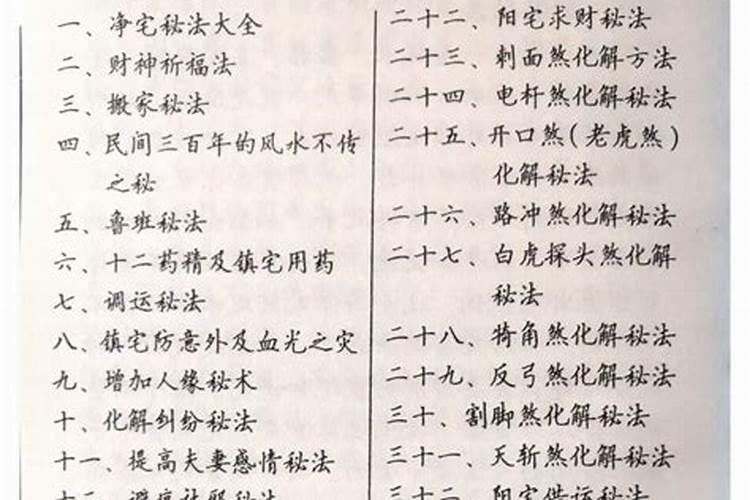 一、净宅秘法大全
二、财神祈福法
三、搬家秘法
四、民间三百年的风水不传
之秘
五、鲁班秘法
六、十二药精及镇宅用药
七、调运秘法
八、镇宅防意外及血光之灾
九、增加人缘秘术
十、化解纠纷秘法
十一、提高夫妻感情秘法
十二、
二十二、阳宅求财秘法
二十三、刺面煞化解方法
二十四、电杆煞化解秘法
二十五、开口煞(老虎煞)
化解秘法
二十六、路冲煞化解秘法
二十七、白虎探头煞化解
秘法
二十八、犄角煞化解秘法
二十九、反弓煞化解秘法
三十、割脚煞化解秘法
三十一、天斩煞化解秘法
三十二、阳宅催运秘法